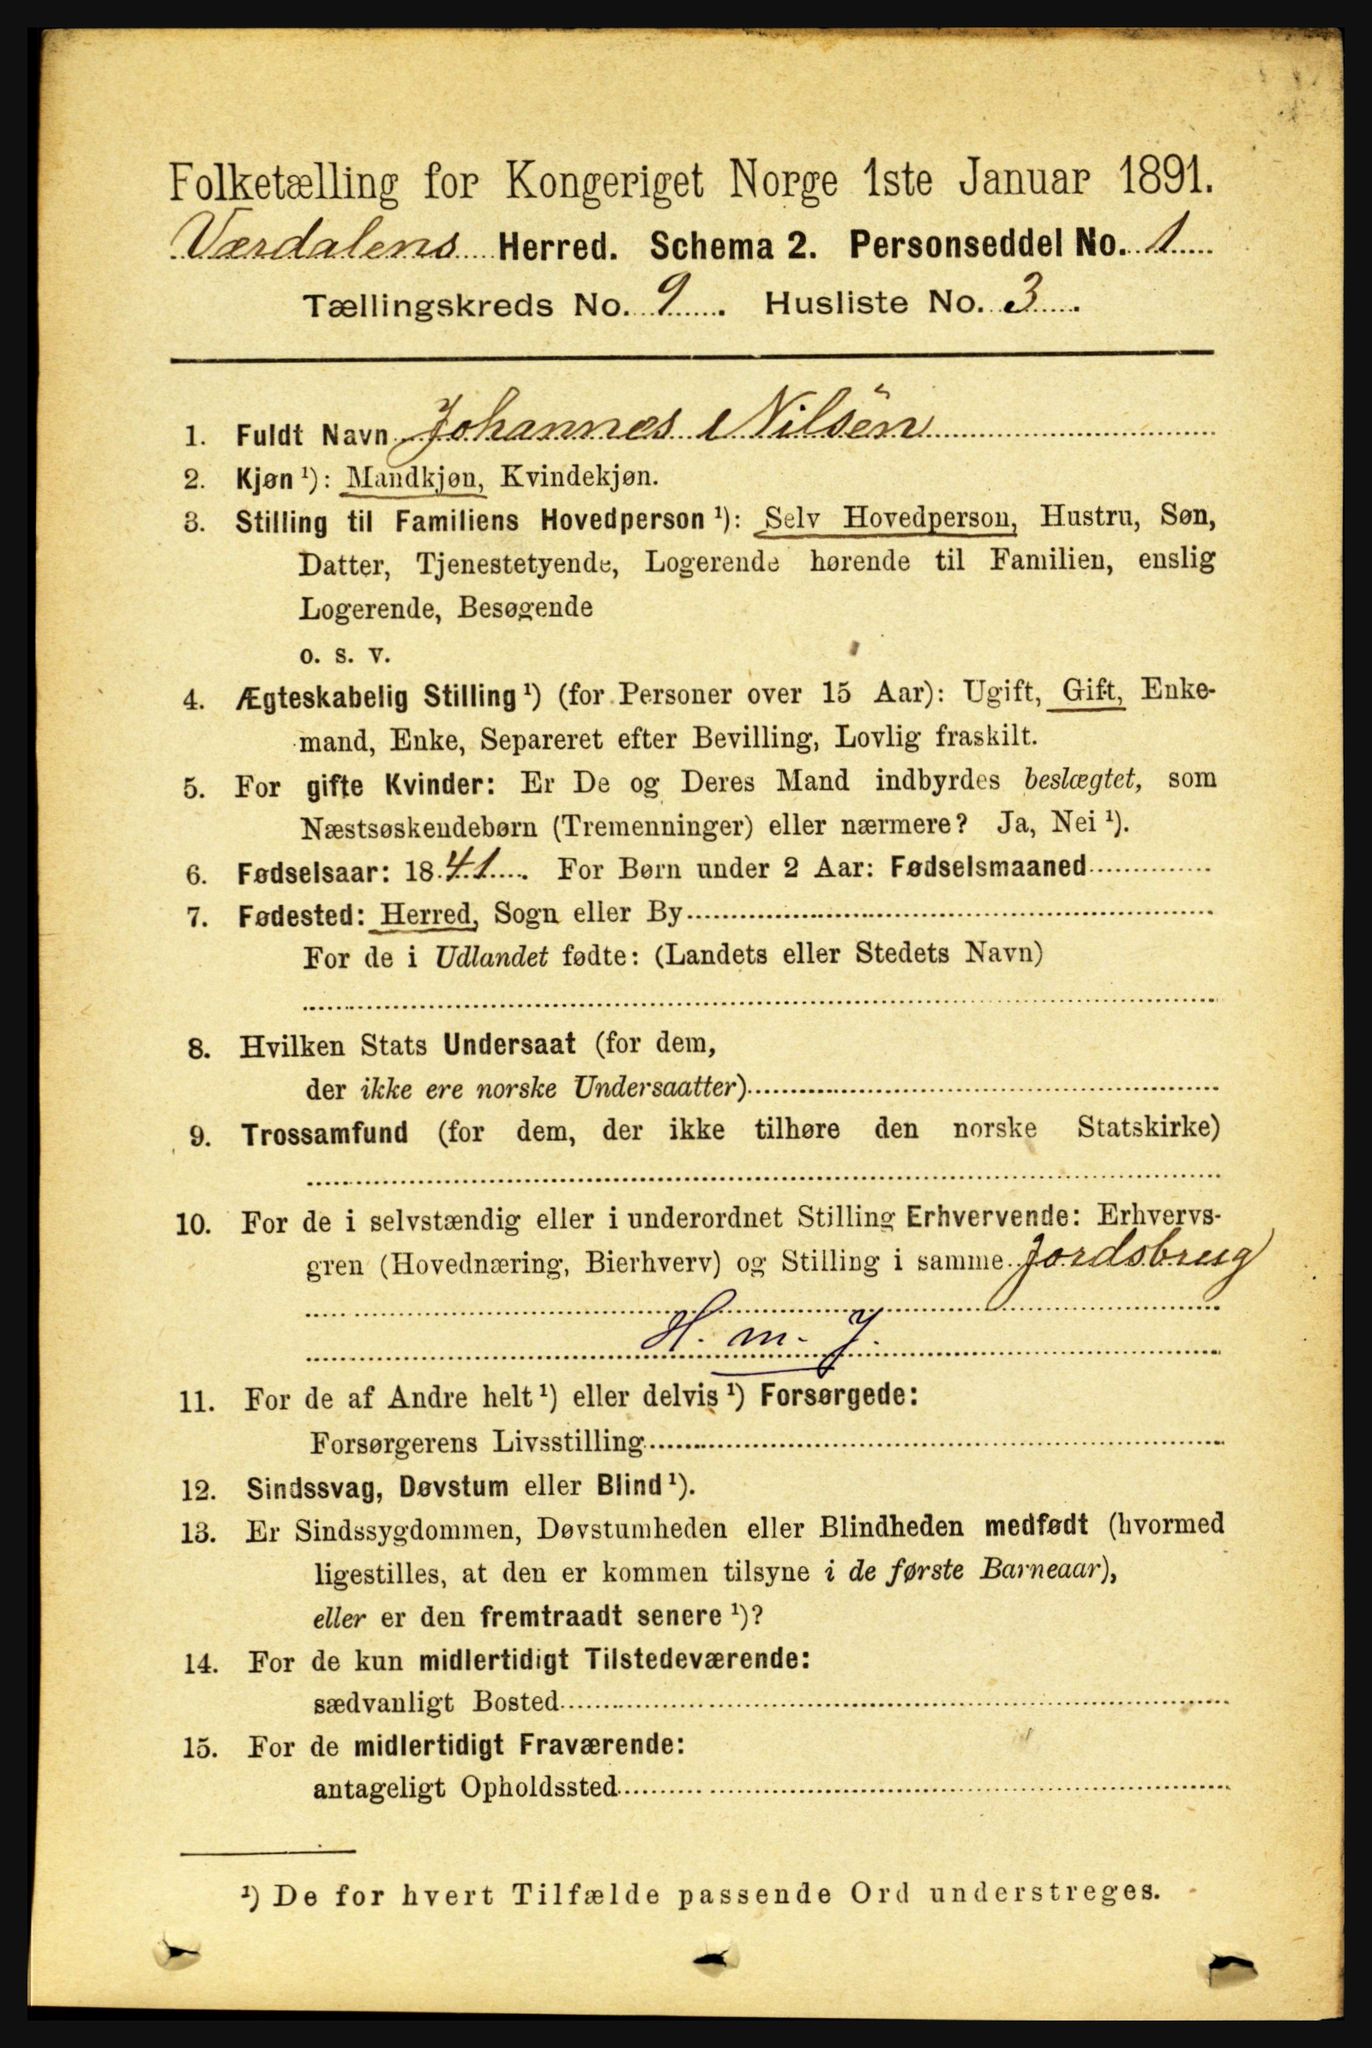 Folketælling for Kongeriget Norge 1ste Januar 1891.
Værdalens Herred. Schema 2. Personseddel No. 1
Tællingskreds No. 9. Husliste No. 3.
1. Fuldt Navn Johannes Nilsen
2. Kjøn ¹): Mandkjøn, Kvindekjøn.
3. Stilling til Familiens Hovedperson ¹): Selv Hovedperson, Hustru, Søn,
Datter, Tjenestetyende, Logerende hørende til Familien, enslig
Logerende, Besøgende
o. s. v.
4. Ægteskabelig Stilling ¹) (for Personer over 15 Aar): Ugift, Gift, Enke-
mand, Enke, Separeret efter Bevilling, Lovlig fraskilt.
5. For gifte Kvinder: Er De og Deres Mand indbyrdes beslægtet, som
Næstsøskendebørn (Tremenninger) eller nærmere? Ja, Nei ¹).
6. Fødselsaar: 1841. For Børn under 2 Aar: Fødselsmaaned
7. Fødested: Herred, Sogn eller By
For de i Udlandet fødte: (Landets eller Stedets Navn)
8. Hvilken Stats Undersaat (for dem,
der ikke ere norske Undersaatter)
9. Trossamfund (for dem, der ikke tilhøre den norske Statskirke)
10. For de i selvstændig eller i underordnet Stilling Erhvervende: Erhvervs-
gren (Hovednæring, Bierhverv) og Stilling i samme Jordsbrug
H. m. J.
11. For de af Andre helt ¹) eller delvis ¹) Forsørgede:
Forsørgerens Livsstilling
12. Sindssvag, Døvstum eller Blind ¹).
13. Er Sindssygdommen, Døvstumheden eller Blindheden medfødt (hvormed
ligestilles, at den er kommen tilsyne i de første Barneaar),
eller er den fremtraadt senere ¹)?
14. For de kun midlertidigt Tilstedeværende:
sædvanligt Bosted
15. For de midlertidigt Fraværende:
antageligt Opholdssted
¹) De for hvert Tilfælde passende Ord understreges.